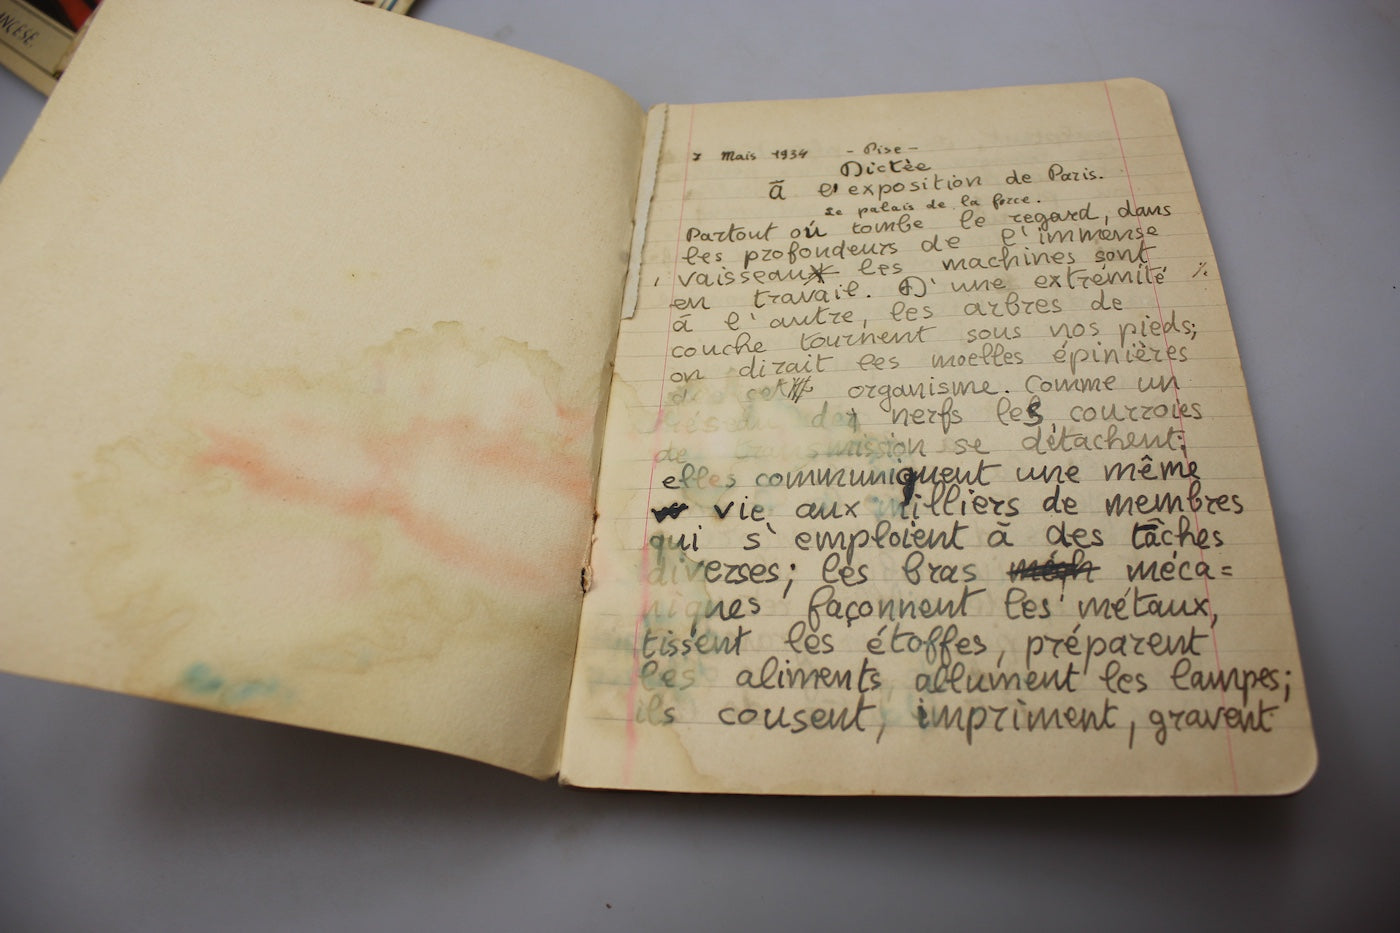 ANCESE.
7 Mais 1934 - Pise -
Dictée
à l'exposition de Paris.
Le palais de la force.
Partout où tombe le regard, dans
les profondeurs de l'immense
vaisseau les machines sont
en travail. D'une extrémité
à l'autre, les arbres de
couche tournent sous nos pieds;
on dirait les moelles épinières
de cet organisme. Comme un
réseau de nerfs les courroies
de transmission se détachent;
elles communiquent une même
vie aux milliers de membres
qui s'emploient à des tâches
diverses; les bras méca=
niques façonnent les métaux,
tissent les étoffes, préparent
les aliments, allument les lampes;
ils cousent, impriment, gravent